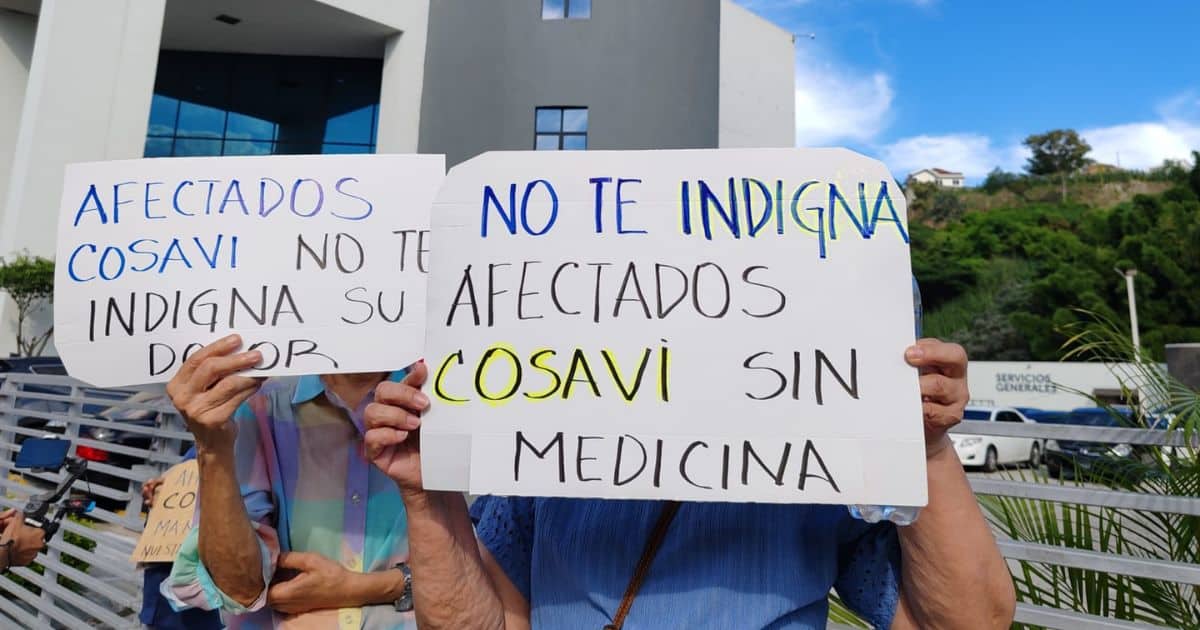 AFECTADOS
COSAVI NO TE
INDIGNA SU
DOLOR
NO TE INDIGNA
AFECTADOS
COSAVI SIN
MEDICINA
SERVICIOS
GENERALES